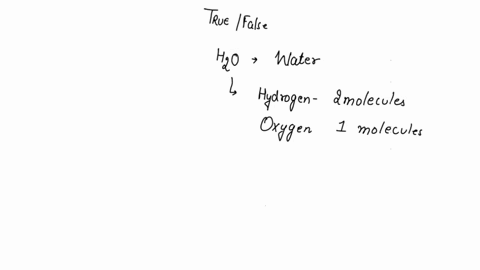 True / False
H2O → Water
↳ Hydrogen - 2 molecules
Oxygen 1 molecules